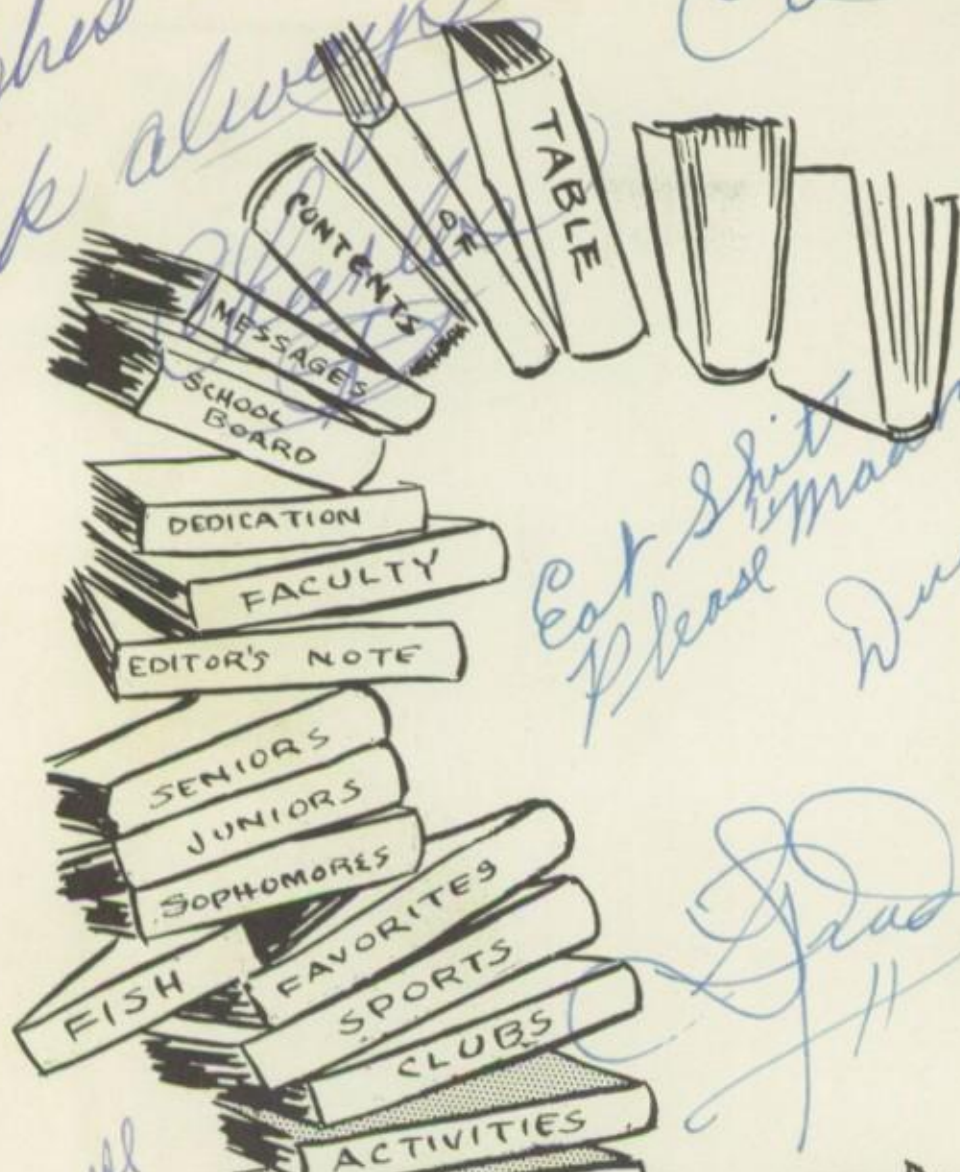 always
TABLE
OF
CONTENTS
MESSAGES
SCHOOL
BOARD
DEDICATION
FACULTY
EDITOR'S NOTE
SENIORS
JUNIORS
SOPHOMORES
FISH
FAVORITES
SPORTS
CLUBS
ACTIVITIES
Eat Shit
Please